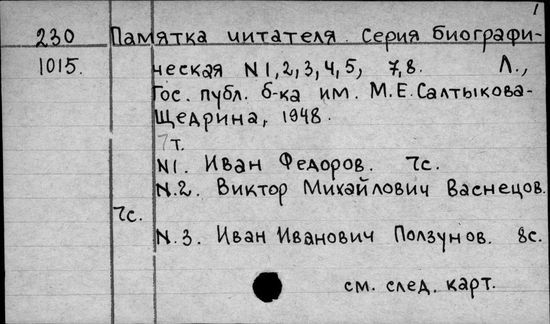 1
230 Памятка читателя. Серия биографи-
1015. ческая N1,2,3,4,5, 7,8. Л.,
Гос. публ. б-ка им. М.Е.Салтыкова-
Щедрина, 1948.
7т.
N1. Иван Федоров. 7с.
N.2. Виктор Михайлович Васнецов.
7с.
N.3. Иван Иванович Ползунов. 8с.
см. след. карт.